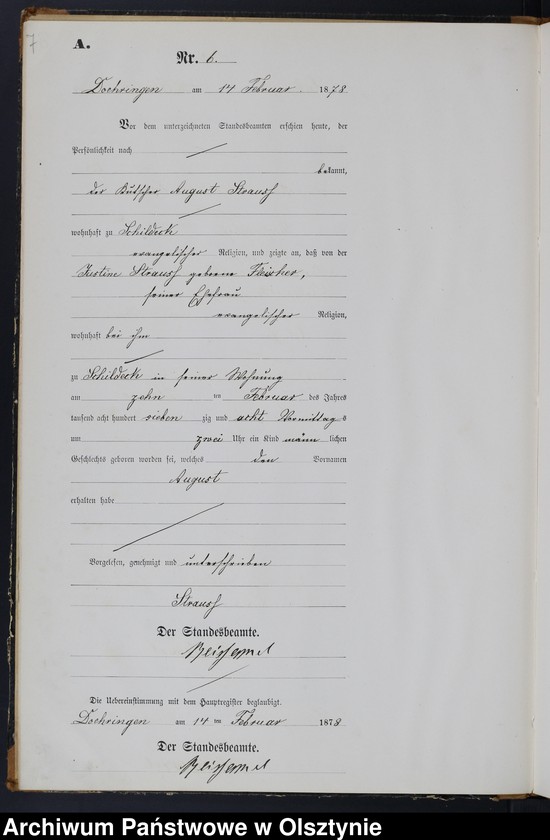 7
A.
Nr. 6.
Doehringen am 14 Februar. 1878
Vor dem unterzeichneten Standesbeamten erschien heute, der
Persönlichkeit nach
bekannt,
der Kutscher August Strauß
wohnhaft zu Schildeck
evangelischer Religion, und zeigte an, daß von der
Justine Strauß geborne Fleischer,
seiner Ehefrau
evangelischer Religion,
wohnhaft bei ihm
zu Schildeck in seiner Wohnung
am zehn ten Februar des Jahres
tausend acht hundert sieben zig und acht Vormittag s
um zwei Uhr ein Kind männ lichen
Geschlechts geboren worden sei, welches den Vornamen
August
erhalten habe
Vorgelesen, genehmigt und unterschrieben
Strauß
Der Standesbeamte.
Die Uebereinstimmung mit dem Hauptregister beglaubigt.
Doehringen am 14 ten Februar 1878
Der Standesbeamte.
Archiwum Państwowe w Olsztynie